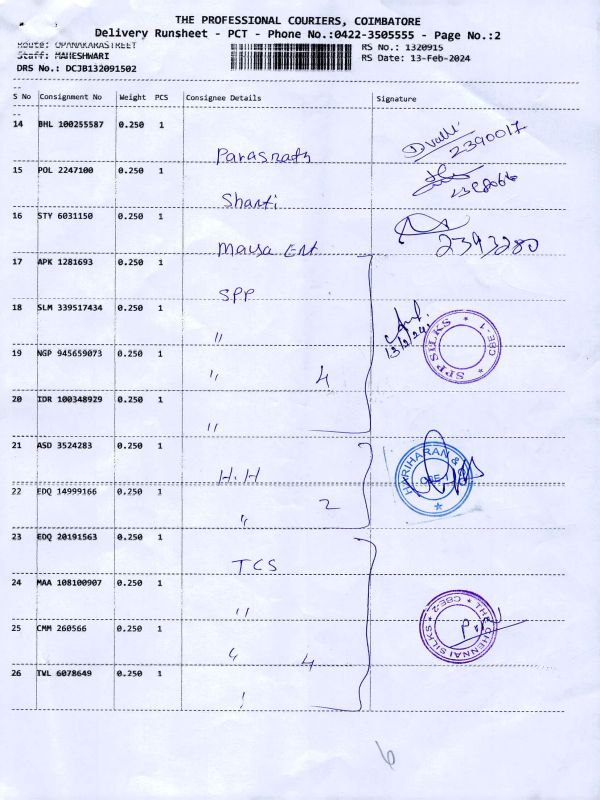 THE PROFESSIONAL COURIERS, COIMBATORE
Delivery Runsheet - PCT - Phone No.:0422-3505555 - Page No.:2
Route: OPANAKARASTREET
RS No.: 1320915
Staff: MAHESHWARI
RS Date: 13-Feb-2024
DRS No.: DCJB132091502
S No Consignment No Weight PCS Consignee Details Signature
14 BHL 100255587 0.250 1
Parasnath 2390017
15 POL 2247100 0.250 1
Shanti
16 STY 6031150 0.250 1
2393280
17 APK 1281693 0.250 1
SPP
18 SLM 339517434 0.250 1
"
13/2/24
SPP SILKS * CBE-1 *
19 NGP 945659073 0.250 1
" 4
20 IDR 100348929 0.250 1
"
21 ASD 3524283 0.250 1
H.H
HARIHARAN &
22 EDQ 14999166 0.250 1
" 2
23 EDQ 20191563 0.250 1
TCS
24 MAA 108100907 0.250 1
"
THE CHENNAI SILKS * CBE-2 *
25 CMM 260566 0.250 1
" 4
26 TVL 6078649 0.250 1
6